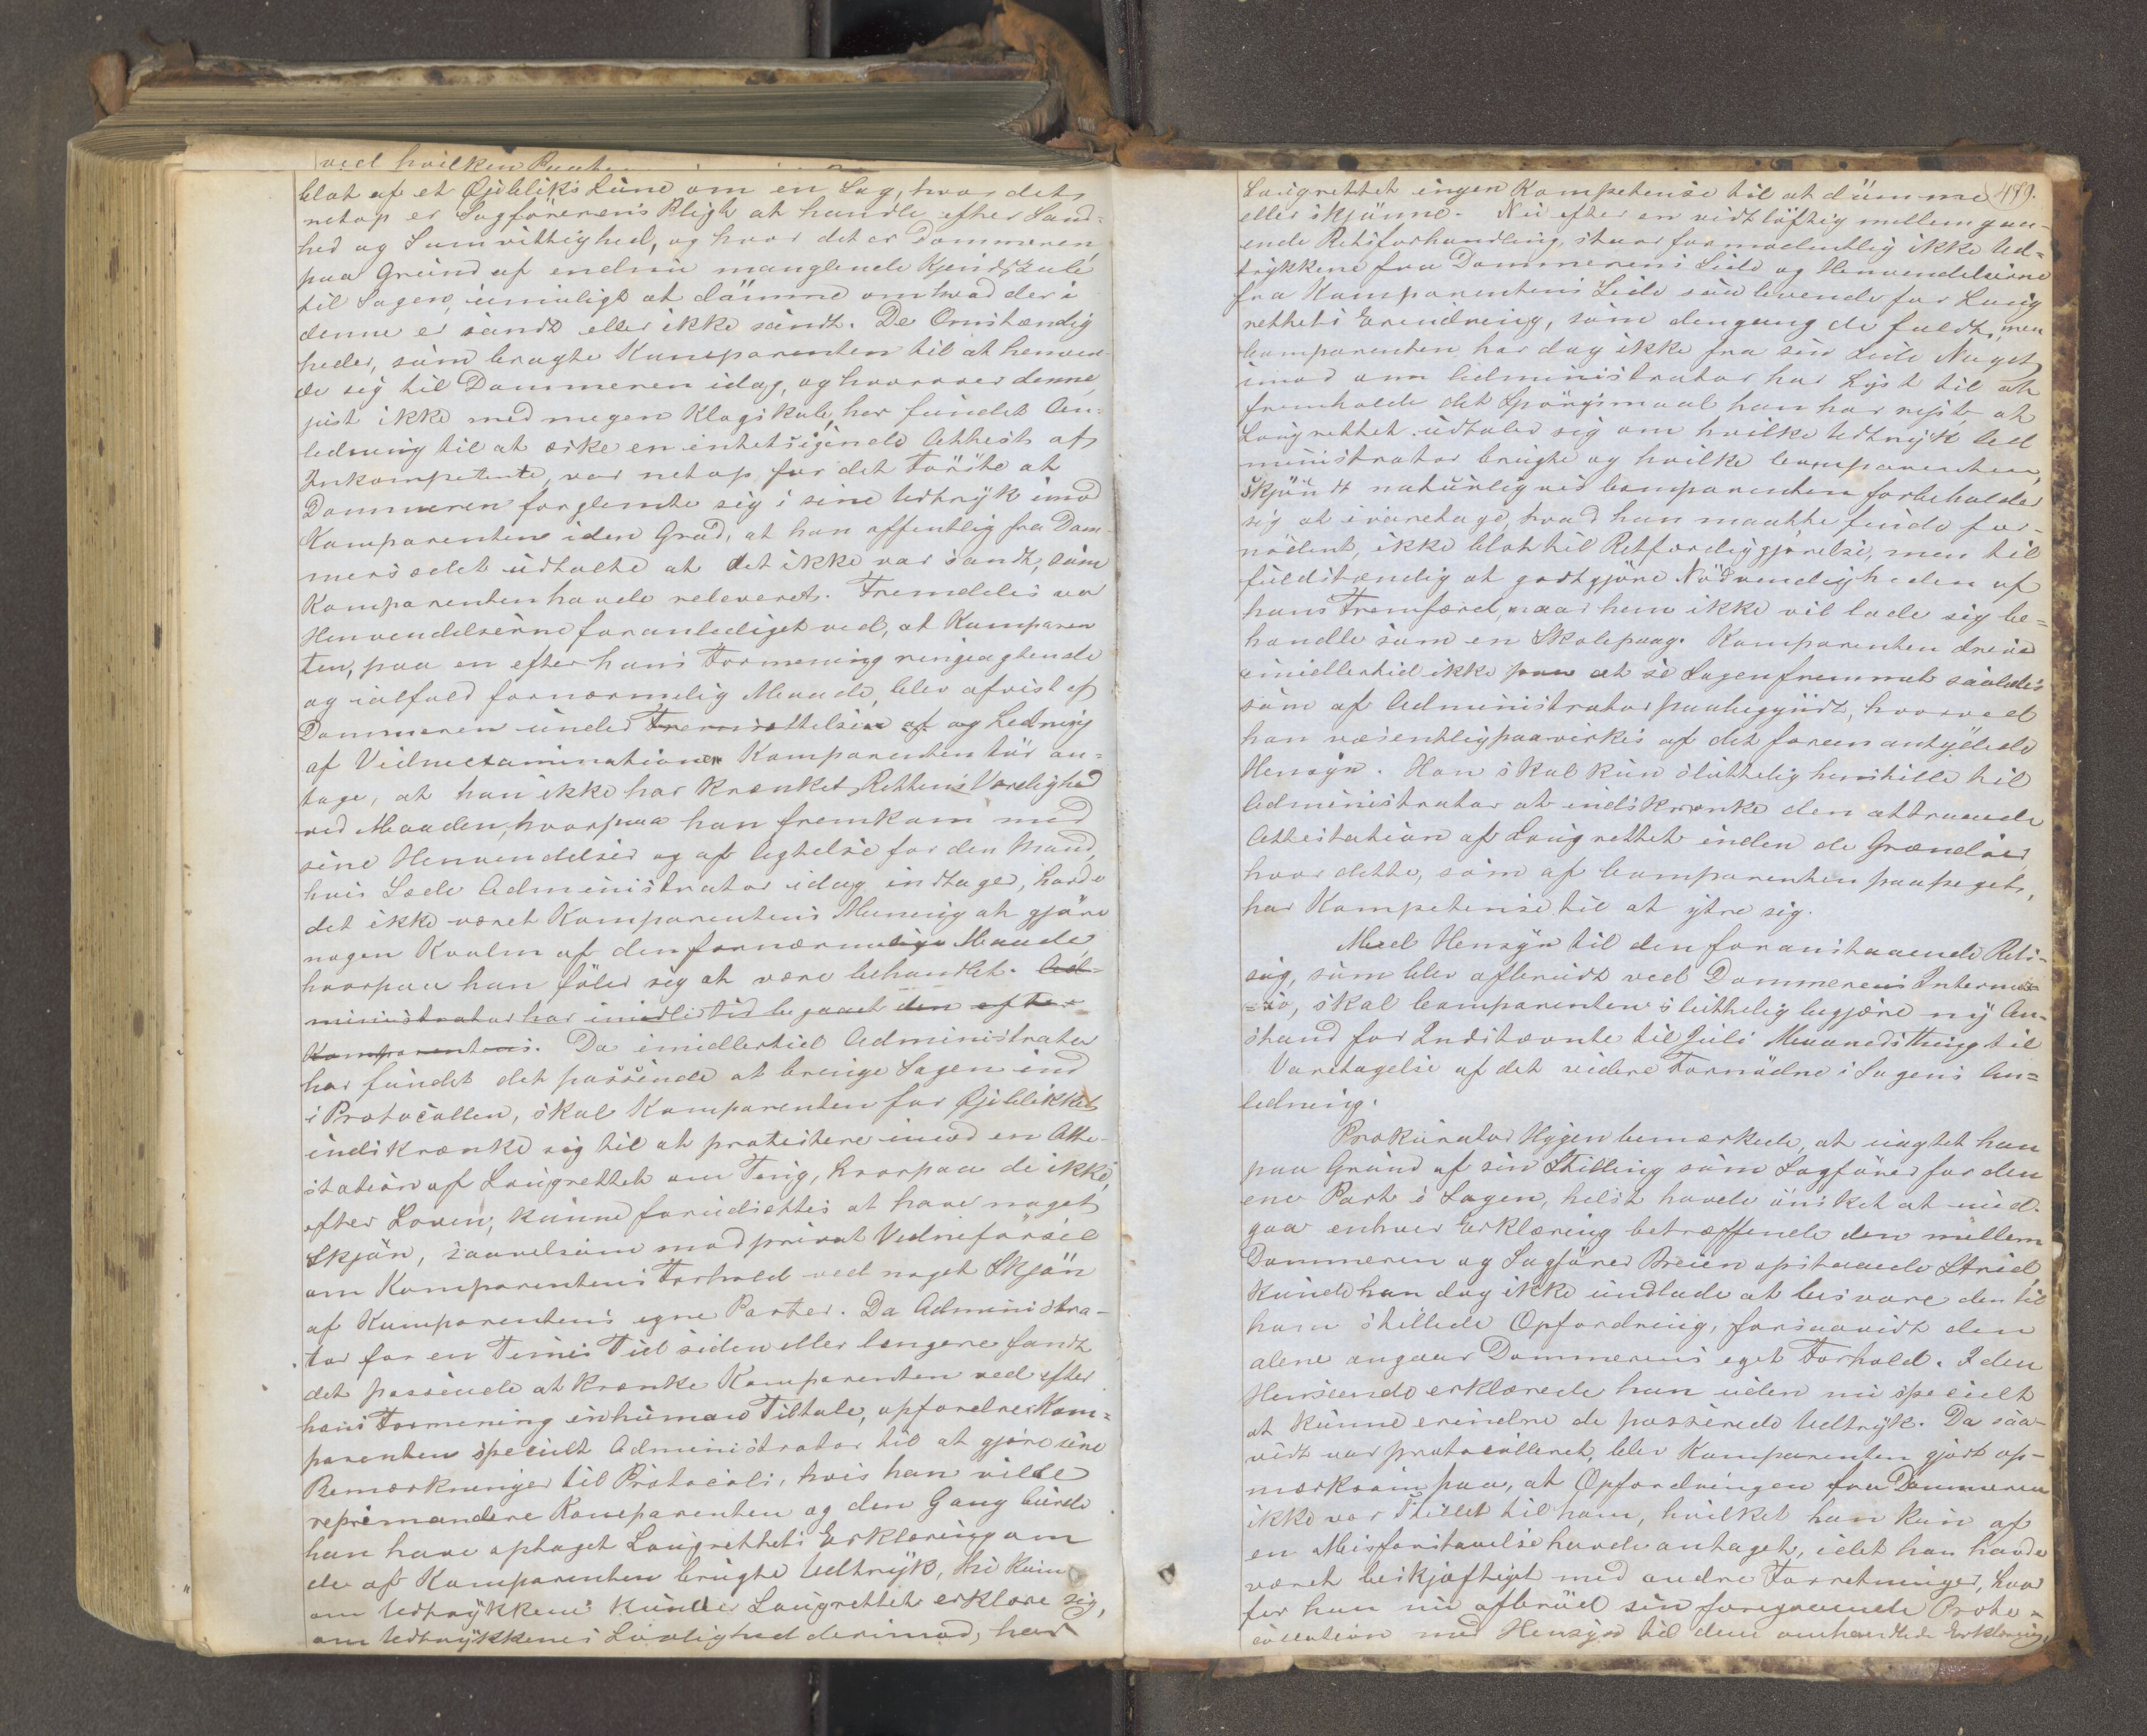 ved hvilken
blot af et Øiebliks Lune om en Sag, hvor det
netop er Sagførerens Pligt at handle efter Sand-
hed og Samvittighed, og hvor det er Dommeren,
paa Grund af endnu manglende Kjendskab
til Sagen, umuligt at dømme om hvad der i
denne er sandt eller ikke sandt. De Omstændig
heder, som bragte Komparenten til at henven-
de sig til Dommeren idag, og hvorover denne,
just ikke med megen Klogskab, har fundet An-
ledning til at æske en intetsigende Attest af
Inkompetente, var netop for det Første at
Dommeren forglemte sig i sine Udtryk imod
Komparenten i den Grad, at han offentlig fra Dom-
mersædet udtalte at det ikke var sandt, som
Komparenten havde releveret. Fremdeles var
Henvendelserne foranlediget ved, at Komparen
ten, paa en efter hans Formening ringeagtende
og ialfald fornærmelig Maade, blev afvist af
Dommeren under Fremsættelsen af og Ledning
af Vidnexaminationen Komparenten tør an-
tage, at han ikke har krænket Rettens Værdighed
ved Maaden, hvorpaa han fremkom med
sine Henvendelser og af Agtelse for den Mand,
hvis Sæde Administrator idag indtager, havde
det ikke været Komparentens Mening at gjøre
nogen Kvalm af den fornærmelige Maade
hvorpaa han føler sig at være behandlet. Ad-
ministrator har imidlertid begaaet den efter
Komparentens. Da imidlertid Administrator
har fundet det passende at bringe Sagen ind
i Protocollen, skal Komparenten for Øieblikket
indskrænke sig til at protestere imod en Atte-
station af Laugrettet om Ting, hvorpaa de ikke,
efter Loven, kunne forudsættes at have noget
Skjøn, saavelsom mod privat Vidneførsel
om Komparentens Forhold ved noget Skjøn
af Komparentens egne Parter. Da Administra-
tor for en Times Tid siden eller længere fandt
det passende at krænke Komparenten ved efter
hans Formening inhuman Tiltale, opfordrer Kom-
parenten specielt Administrator til at gjøre sine
Bemærkninger til Protocols, hvis han vilde
reprimandere Komparenten og den Gang burde
han have optaget Laugrettets Erklæring om
de af Komparenten brugte Udtryk, thi kun
om Udtrykkene kunde Laugrettet erklære sig,
om Udtrykkenes Lovlighed derimod, har
489.
Laugrettet ingen Kompetense til at dømme
eller skjønne. Nu efter en vidtløftig mellemgaa-
ende Retsforhandling, staar formodentlig ikke Ud-
trykkene fra Dommerens Side og Henvendelserne
fra Komparentens Side saa levende for Laug
rettets Erindring, som dengang de faldt, men
Comparenten har dog ikke fra sin Side Noget
imod om Administrator har Lyst til at
fremholde det Spørgsmaal han har reist, at
Laugrettet udtaler sig om hvilke Udtryk Ad
ministrator brugte og hvilke Comparenten,
skjøndt naturligvis Comparenten forbeholder
sig at ivaretage, hvad han maatte finde for-
nødent, ikke blot til Retfærdiggjørelse, men til
fuldstændig at godtgjøre Nødvendigheden af
hans Fremfærd, naar han ikke vil lade sig be-
handle som en Skolepog. Komparenten
imidlertid ikke paa at se Sagen fremmet saaledes
som af Administrator paabegyndt, hvorved
han væsentlig paavirkes af det foran antydede
Hensyn. Han skal kun sluttelig henstille til
Administrator at indskrænke den attraaede
Attestation af Laugrettet inden de Grændser
hvor dette, som af Comparenten paapeget,
har Kompetense til at ytre sig.
Med Hensyn til den foranstaaende Rets-
sag, som blev afbrudt ved Dommerens Intermez-
zo, skal Comparenten sluttelig begjære ny An-
stand for Indstævnte til Juli Maanedsthing til
Varetagelse af det videre Fornødne i Sagens An-
ledning.
Prokurator Hygen bemærkede, at uagtet han
paa Grund af sin Stilling som Sagfører for den
ene Part i Sagen, helst havde ønsket at und-
gaa enhver Erklæring betræffende den mellem
Dommeren og Sagfører Breien opstaaede Strid,
kunde han dog ikke undlade at besvare den til
ham stillede Opfordring, forsaavidt den
alene angaar Dommerens eget Forhold. I den
Henseende erklærede han uden nu specielt
at kunne erindre de passerede Udtryk. Da saa-
vidt var protocolleret, blev Komparenten gjort op-
mærksom paa, at Opfordringen fra Dommeren
ikke var stillet til ham, hvilket han kun af
en Misforstaaelse havde antaget, idet han havde
været beskjæftiget med andre Forretninger, hvor
for han nu afbrød sin foregaaende Proto-
collation med Hensyn til den omhandlede Erklæring,